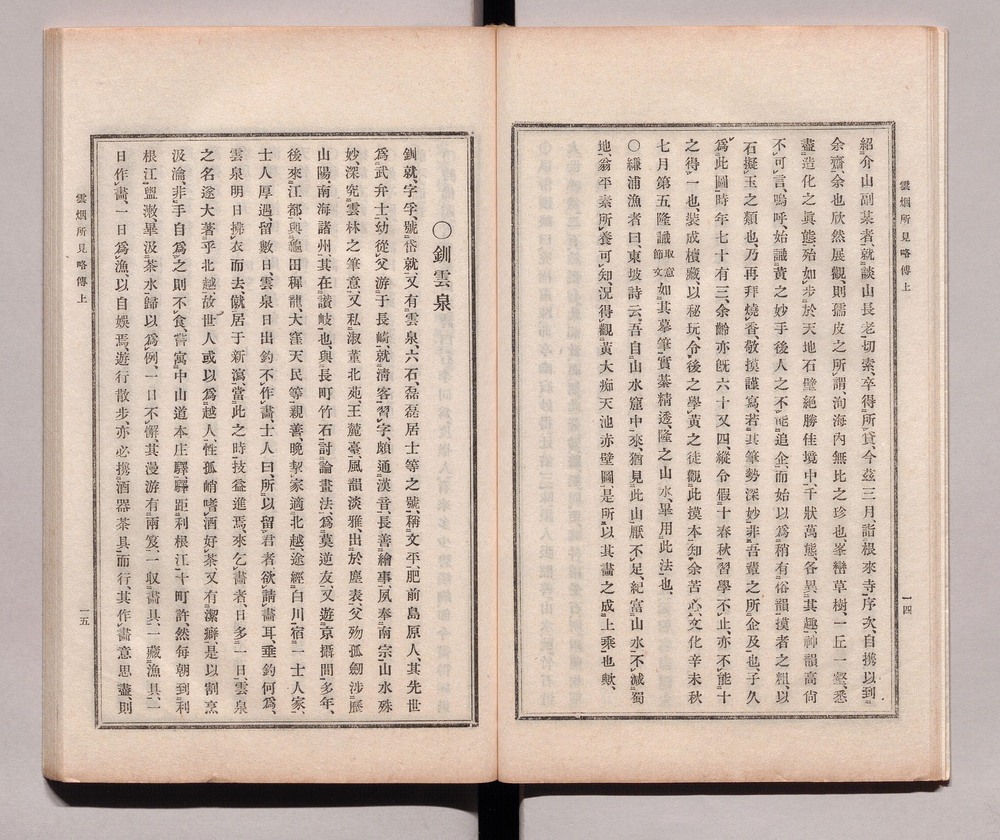 雲烟所見略傳上
一四
紹介山副某者、就談山長老、切索、卒得所貸、今茲三月詣根來寺、序次、自携以到
余齋、余也欣然展觀、則孺皮之所謂洵海內無比之珍也、峯巒草樹、一丘一壑、悉
盡造化之眞態、殆如步於天地石壁絕勝佳境中、千狀萬態、各異其趣、神韻高尙
不可言、嗚呼、始識黃之妙手後人之不能追企、而始以爲稍有俗韻、摸者之粗、以
石擬玉之類也、乃再拜燒香、敬摸謹寫、若其筆勢深妙、非吾輩之所企及也、子久
爲此圖時年七十有三、余齡亦旣六十又四、縱令假十春秋、習學不止、亦不能十
之得一也、裝成櫝藏、以秘玩、令後之學黃之徒觀此摸本、知余苦心、文化辛未秋
七月第五隆識取意節文如其摹筆實綦精透、隆之山水、畢用此法也、
〇縑浦漁者曰、東坡詩云、吾自山水窟中來、猶見此山厭不足、紀富山水、不減蜀
地、翁平素所養可知、況得觀黃大痴天池赤壁圖、是所以其畵之成上乘也歟、
〇釧雲泉
釧就、字仲孚、號岱就、又有雲泉、六石、磊磊居士等之號、稱文平、肥前島原人、其先世
爲武弁士、幼從父游于長崎、就淸客習字、頗通漢音、長善繪事、夙奉南宗山水殊
妙、深究雲林之筆意、又私淑董北苑、王麓臺、風韻淡雅、出於塵表、父歿孤劒涉歷
山陽、南海諸州、其在讃岐也、與長町竹石討論畫法、爲莫逆友、又遊京攝間多年、
後來江都、與龜田穉龍、大窪天民等親善、晚挈家適北越、途經白川、宿一士人家、
士人厚遇、留數日、雲泉日出釣不作畵、士人曰、所以留君者欲請畵耳、垂釣何爲、
雲泉明日擔衣而去、僦居于新瀉、當此之時技益進焉、來乞畵者、日多一日、雲泉
之名遂大著乎北越、故世人或以爲越人、性孤峭嗜酒好茶、又有潔癖、是以割烹
汲瀹、非手自爲之則不食、嘗寓中山道本庄驛、驛距利根江十町許、然每朝到利
根江、盥漱、畢汲茶水歸以爲例、一日不懈、其漫游有兩笈、一收畵具、一藏漁具、二
日作畵、一日爲漁、以自娛焉、遊行散步、亦必携酒器茶具而行、其作畵意思盡、則
雲烟所見略傳上
一五